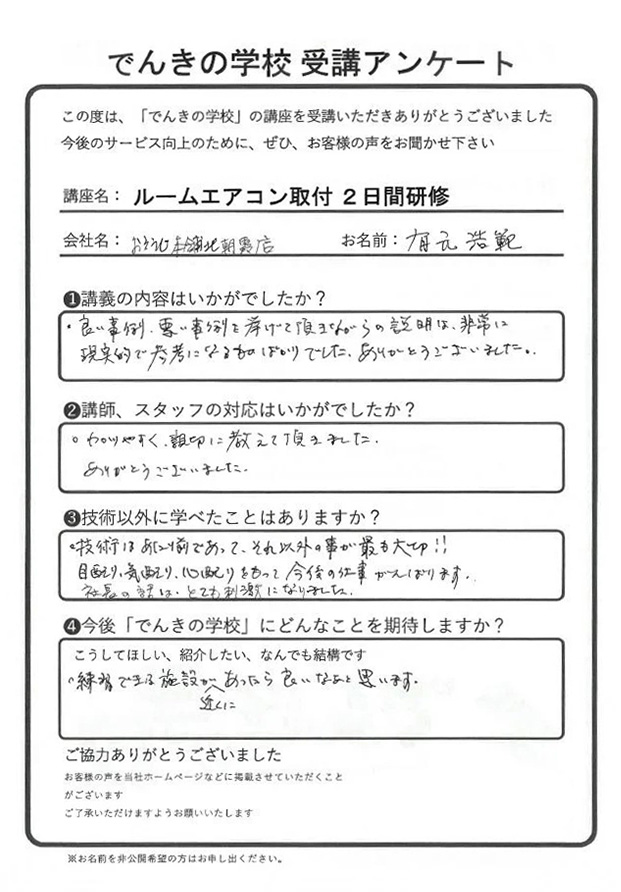 でんきの学校 受講アンケート
この度は、「でんきの学校」の講座を受講いただきありがとうございました
今後のサービス向上のために、ぜひ、お客様の声をお聞かせ下さい
講座名： ルームエアコン取付 2日間研修
会社名： おそうじ本舗北朝霞店 お名前： 有元 浩範
❶講義の内容はいかがでしたか？
・良い事例、悪い事例を挙げて頂きながらの説明は、非常に
現実的で参考になるものばかりでした、ありがとうございました。
❷講師、スタッフの対応はいかがでしたか？
。わかりやすく、親切に教えて頂きました。
ありがとうございました。
❸技術以外に学べたことはありますか？
・技術は あたり前であって、それ以外の事が最も大切!!
目配り、気配り、心配りをもって今後の仕事がんばります。
社長の話は、とても刺激になりました。
❹今後「でんきの学校」にどんなことを期待しますか？
こうしてほしい、紹介したい、なんでも結構です
・練習できる施設が あったら良いなぁと思います。
近くに
ご協力ありがとうございました
お客様の声を当社ホームページなどに掲載させていただくこと
がございます
ご了承いただけますようお願いいたします
※お名前を非公開希望の方はお申し出ください。